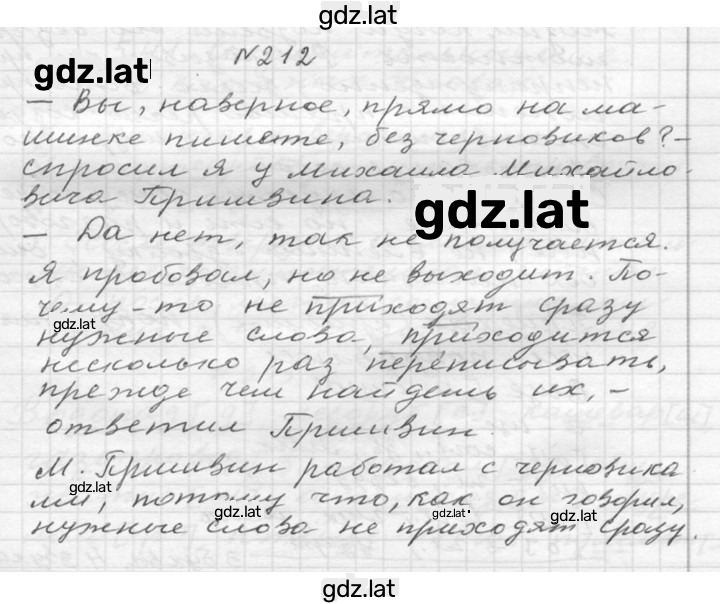 gdz.lat
№212
gdz.lat
– Вы, наверное, прямо на ма-
шинке пишете, без черновиков? –
спросил я у Михаила Михайло-
вича Пришвина.
gdz.lat
– Да нет, так не получается.
Я пробовал, но не выходит. По-
чему-то не приходят сразу
gdz.lat
нужные слова, приходится
несколько раз переписывать,
прежде чем найдешь их, –
ответил Пришвин.
М. Пришвин работал с черновика
gdz.lat
ми, потому что, как он говорил,
gdz.lat
gdz.lat
нужные слова не приходят сразу.
gdz.lat